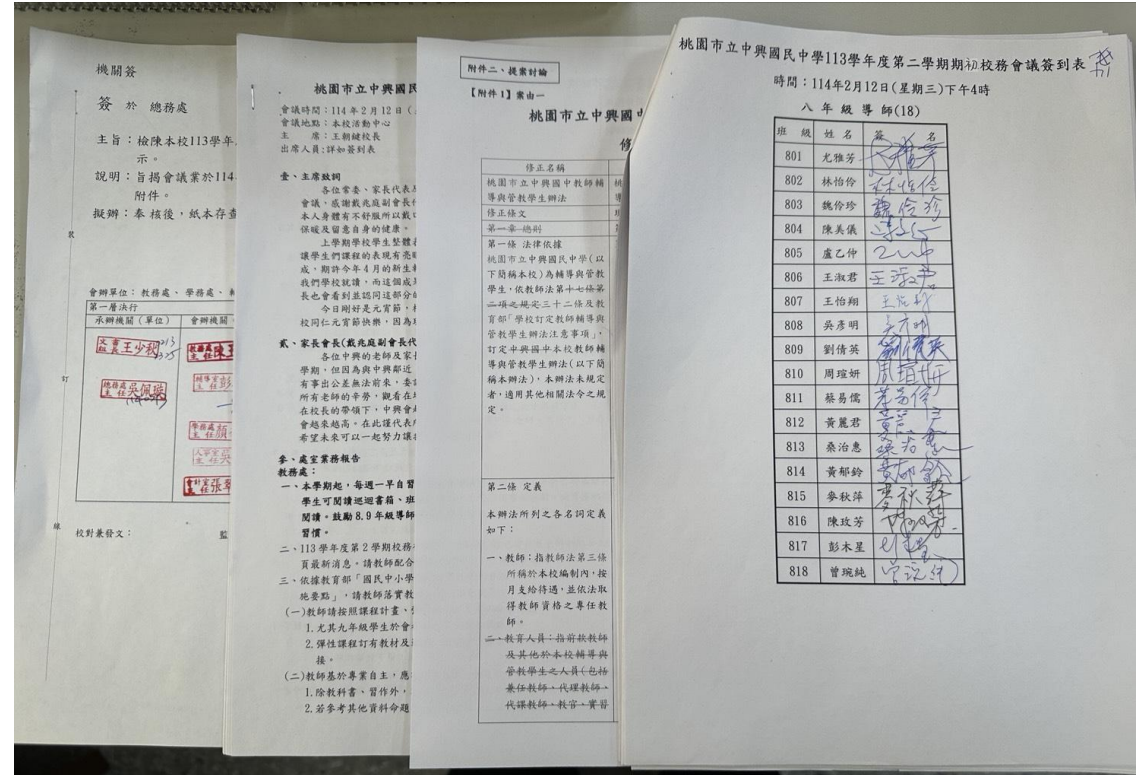 機關簽
簽 於 總務處
主旨：檢陳本校113學年
示。
說明：旨揭會議業於114
附件。
擬辦：奉核後，紙本存查
裝
訂
線
會辦單位：教務處、學務處、
第一層決行
承辦機關（單位） 會辦機關
文書組長 王少秋 213
總務處主任 吳佩璇
教務處主任 陳
輔導室主任 彭
學務處主任 顏
人事室主任 吳
會計室主任 張
校對兼發文： 監
桃園市立中興國民
會議時間：114 年 2 月 12 日（
會議地點：本校活動中心
主 席：王朝鍵校長
出席人員：詳如簽到表
壹、主席致詞
各位常委、家長代表
會議。感謝戴兆庭副會長
本人身體有不舒服所以戴口
保暖及留意自身的健康。
上學期學校學生整體
讓學生們課程的表現有亮
成，期許今年 4 月的新生
我們學校就讀，而這個成
長也會看到並認同這部分
今日剛好是元宵節，
校同仁元宵節快樂，因為
貳、家長會長(戴兆庭副會長代
各位中興的老師及家
學期，但因為與中興鄰近
有事出公差無法前來，委
所有老師的辛勞，觀看在
在校長的帶領下，中興會
會越來越高。在此謹代表
希望未來可以一起努力讓
參、處室業務報告
教務處：
一、本學期起，每週一早自習
學生可閱讀巡迴書箱、班
閱讀。鼓勵 8.9 年級導師
習慣。
二、113 學年度第 2 學期校務
頁最新消息。請教師配合
三、依據教育部「國民中小學
施要點」，請教師落實教
(一)教師請按照課程計畫、
1.尤其九年級學生於會
2.彈性課程訂有教材及
接。
(二)教師基於專業自主，應
1.除教科書、習作外，
2.若參考其他資料命題
附件二、提案討論
【附件 1】案由一
桃園市立中興國
修
修正名稱
桃園市立中興國中教師輔
導與管教學生辦法
修正條文
第一章 總則
第一條 法律依據
桃園市立中興國民中學(以
下簡稱本校)為輔導與管教
學生，依教師法第十七條第
二項之規定三十二條及教
育部「學校訂定教師輔導與
管教學生辦法注意事項」，
訂定中興國中本校教師輔
導與管教學生辦法(以下簡
稱本辦法)，本辦法未規定
者，適用其他相關法令之規
定。
第二條 定義
本辦法所列之各名詞定義
如下：
一、教師：指教師法第三條
所稱於本校編制內，按
月支給待遇，並依法取
得教師資格之專任教
師。
二、教育人員：指前款教師
及其他於本校輔導與
管教學生之人員(包括
兼任教師、代理教師、
代課教師、教官、實習
桃園市立中興國民中學113學年度第二學期期初校務會議簽到表
時間：114年2月12日(星期三)下午4時
八 年 級 導 師(18)
班 級 姓 名 簽 名
801 尤雅芳 尤雅芳
802 林怡伶 林怡伶
803 魏伶珍 魏伶珍
804 陳美儀
805 盧乙仲
806 王淑君 王淑君
807 王怡翔 王怡翔
808 吳彥明 吳彥明
809 劉倩英 劉倩英
810 周瑄妍 周瑄妍
811 蔡易儒 蔡易儒
812 黃麗君
813 桑治惠 桑治惠
814 黃郁鈴 黃郁鈴
815 麥秋萍 麥秋萍
816 陳玫芳
817 彭木星
818 曾琬純 曾琬純